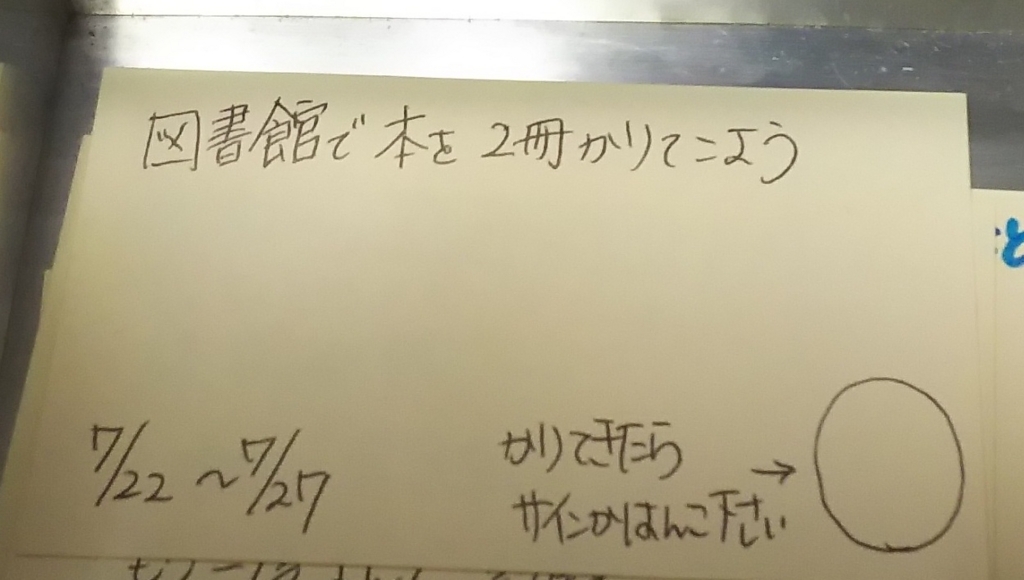 図書館で本を2冊かりてこよう
7/22～7/27
かりてきたら
サインかはんこ下さい
→